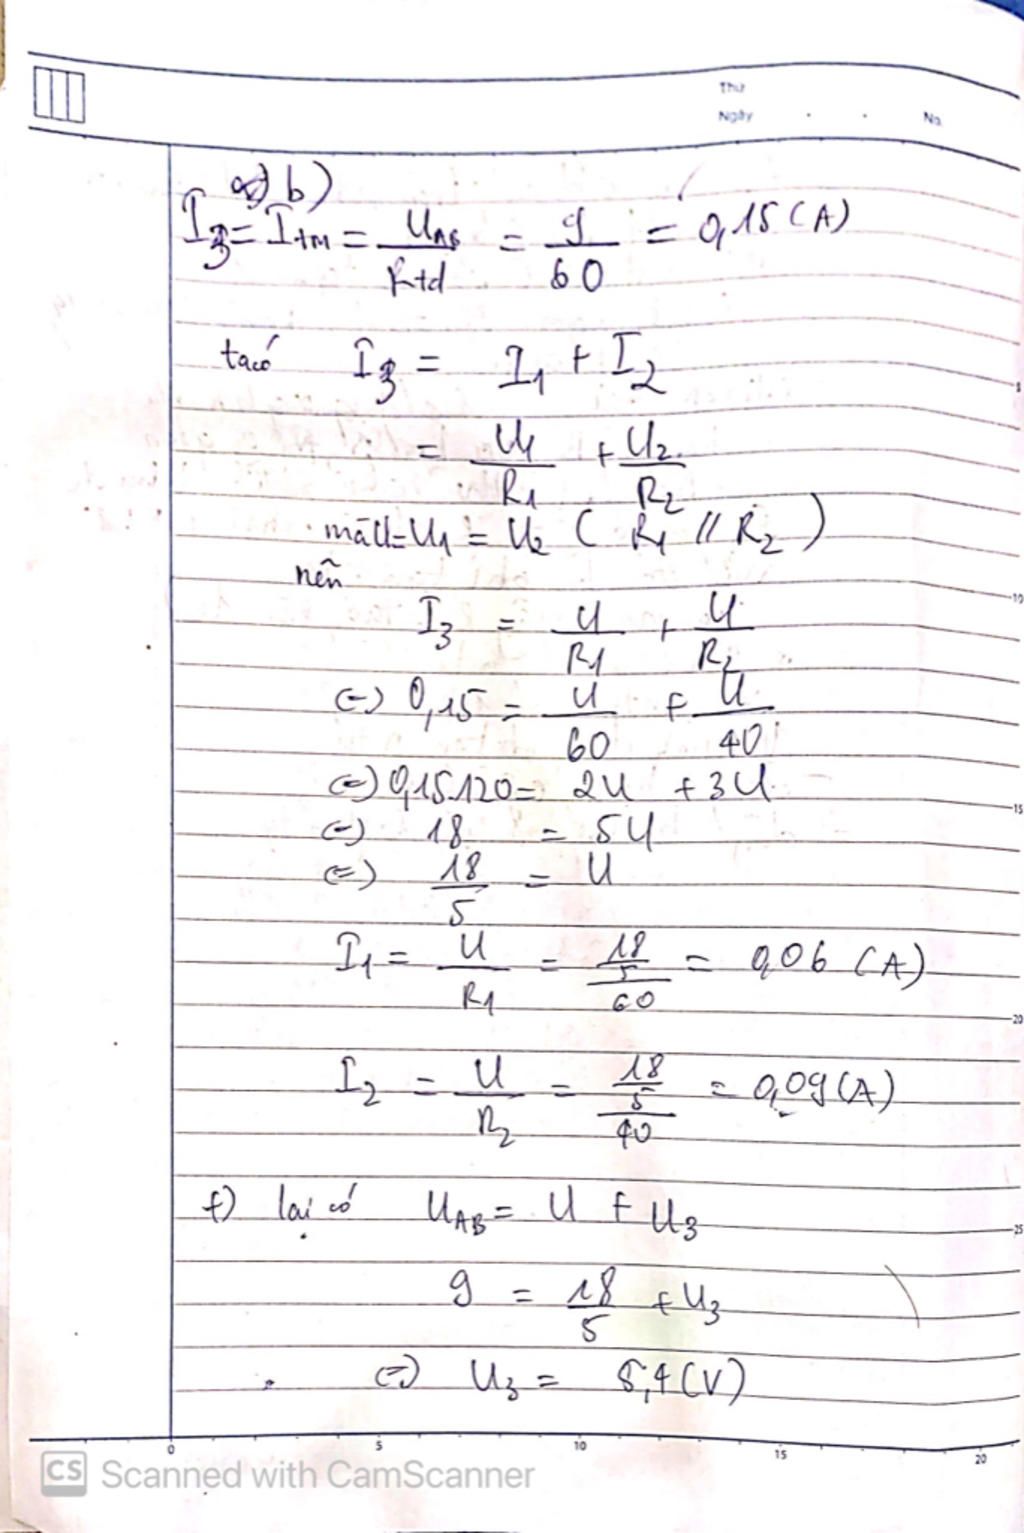 Thứ
Ngày . . No.
b)
I3 = Itm = UAB/Rtđ = 9/60 = 0,15 (A)
ta có I3 = I1 + I2
= U1/R1 + U2/R2
mà U = U1 = U2 ( R1 // R2 )
nên
I3 = U/R1 + U/R2
(=) 0,15 = U/60 + U/40
(=) 0,15.120 = 2U + 3U
(=) 18 = 5U
(=) 18/5 = U
I1 = U/R1 = 18/5/60 = 0,06 (A)
I2 = U/R2 = 18/5/40 = 0,09 (A)
+) lại có UAB = U + U3
9 = 18/5 + U3
(=) U3 = 5,4 (V)
0 5 10 15 20
CS Scanned with CamScanner